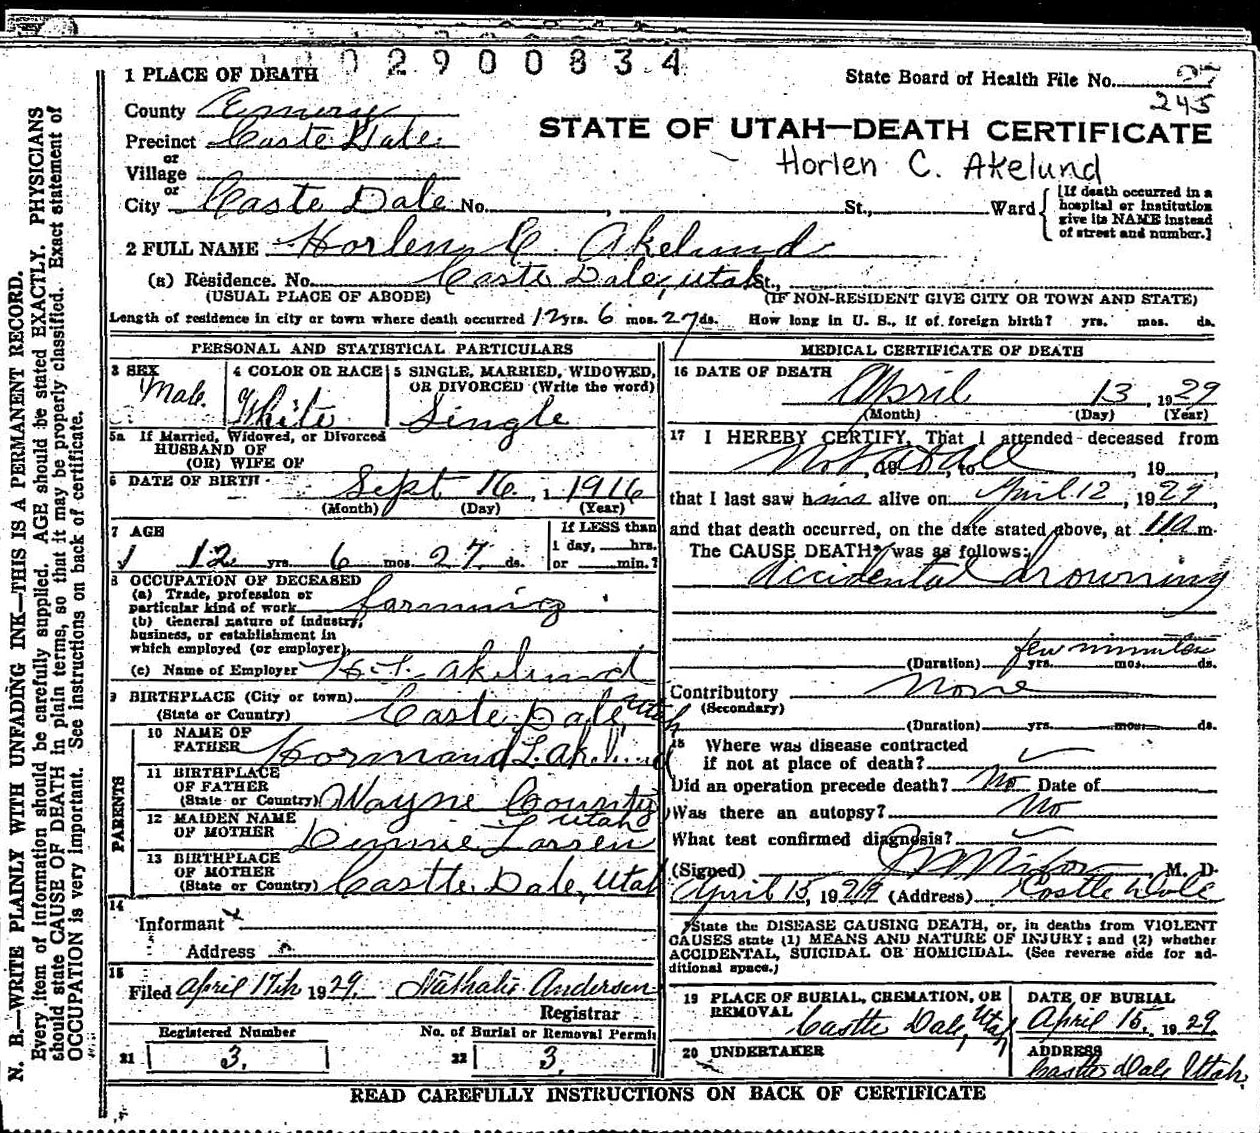 0 2 9 0 0 8 3 4
1 PLACE OF DEATH
State Board of Health File No.
245
County Emery
STATE OF UTAH—DEATH CERTIFICATE
Precinct Caste Dale
Horlen C. Akelund
or
Village
or
City Caste Dale No. , St., Ward
[If death occurred in a
hospital or institution
give its NAME instead
of street and number.]
2 FULL NAME Horlen C. Akelund
(a) Residence. No. Caste Dale, Utah St.,
(USUAL PLACE OF ABODE)
(IF NON-RESIDENT GIVE CITY OR TOWN AND STATE)
Length of residence in city or town where death occurred 12 yrs. 6 mos. 27 ds. How long in U. S., if of foreign birth? yrs. mos. ds.
PERSONAL AND STATISTICAL PARTICULARS
3 SEX
Male
4 COLOR OR RACE
White
5 SINGLE, MARRIED, WIDOWED,
OR DIVORCED (Write the word)
Single
5a If Married, Widowed, or Divorced
HUSBAND OF
(OR) WIFE OF
6 DATE OF BIRTH Sept 16, 1916
(Month) (Day) (Year)
7 AGE
12 yrs. 6 mos 27 ds.
If LESS than
1 day, hrs.
or min.?
8 OCCUPATION OF DECEASED
(a) Trade, profession or
particular kind of work farming
(b) General nature of industry,
business, or establishment in
which employed (or employer)
(c) Name of Employer H. L. Akelund
9 BIRTHPLACE (City or town)
(State or Country) Caste Dale Utah
PARENTS
10 NAME OF
FATHER Hormand L. Akelund
11 BIRTHPLACE
OF FATHER
(State or Country) Wayne County
Utah
12 MAIDEN NAME
OF MOTHER Dennie Larsen
13 BIRTHPLACE
OF MOTHER
(State or Country) Castle Dale, Utah
14
Informant
Address
15
Filed April 17th 1929. Nathalie Andersen
Registrar
Registered Number
No. of Burial or Removal Permit
21 3.
22 3.
MEDICAL CERTIFICATE OF DEATH
16 DATE OF DEATH
April 13, 1929
(Month) (Day) (Year)
17 I HEREBY CERTIFY, That I attended deceased from
Not at all, 19 , to , 19 ,
that I last saw him alive on April 12, 1929
and that death occurred, on the date stated above, at 11a m.
The CAUSE DEATH* was as follows:
Accidental drowning
few minutes
(Duration) yrs. mos. ds.
Contributory None
(Secondary)
(Duration) yrs. mos. ds.
18 Where was disease contracted
if not at place of death?
Did an operation precede death? No Date of
Was there an autopsy? No
What test confirmed diagnosis?
(Signed) M. D.
April 15, 1929 (Address) Castle Dale
*State the DISEASE CAUSING DEATH, or, in deaths from VIOLENT
CAUSES state (1) MEANS AND NATURE OF INJURY; and (2) whether
ACCIDENTAL, SUICIDAL OR HOMICIDAL. (See reverse side for ad-
ditional space.)
19 PLACE OF BURIAL, CREMATION, OR
REMOVAL
Castle Dale, Utah
DATE OF BURIAL
April 15, 1929.
20 UNDERTAKER
ADDRESS
Castle Dale Utah,
READ CAREFULLY INSTRUCTIONS ON BACK OF CERTIFICATE
N. B.—WRITE PLAINLY WITH UNFADING INK—THIS IS A PERMANENT RECORD.
Every item of information should be carefully supplied. AGE should be stated EXACTLY. PHYSICIANS
should state CAUSE OF DEATH in plain terms, so that it may be properly classified. Exact statement of
OCCUPATION is very important. See instructions on back of certificate.